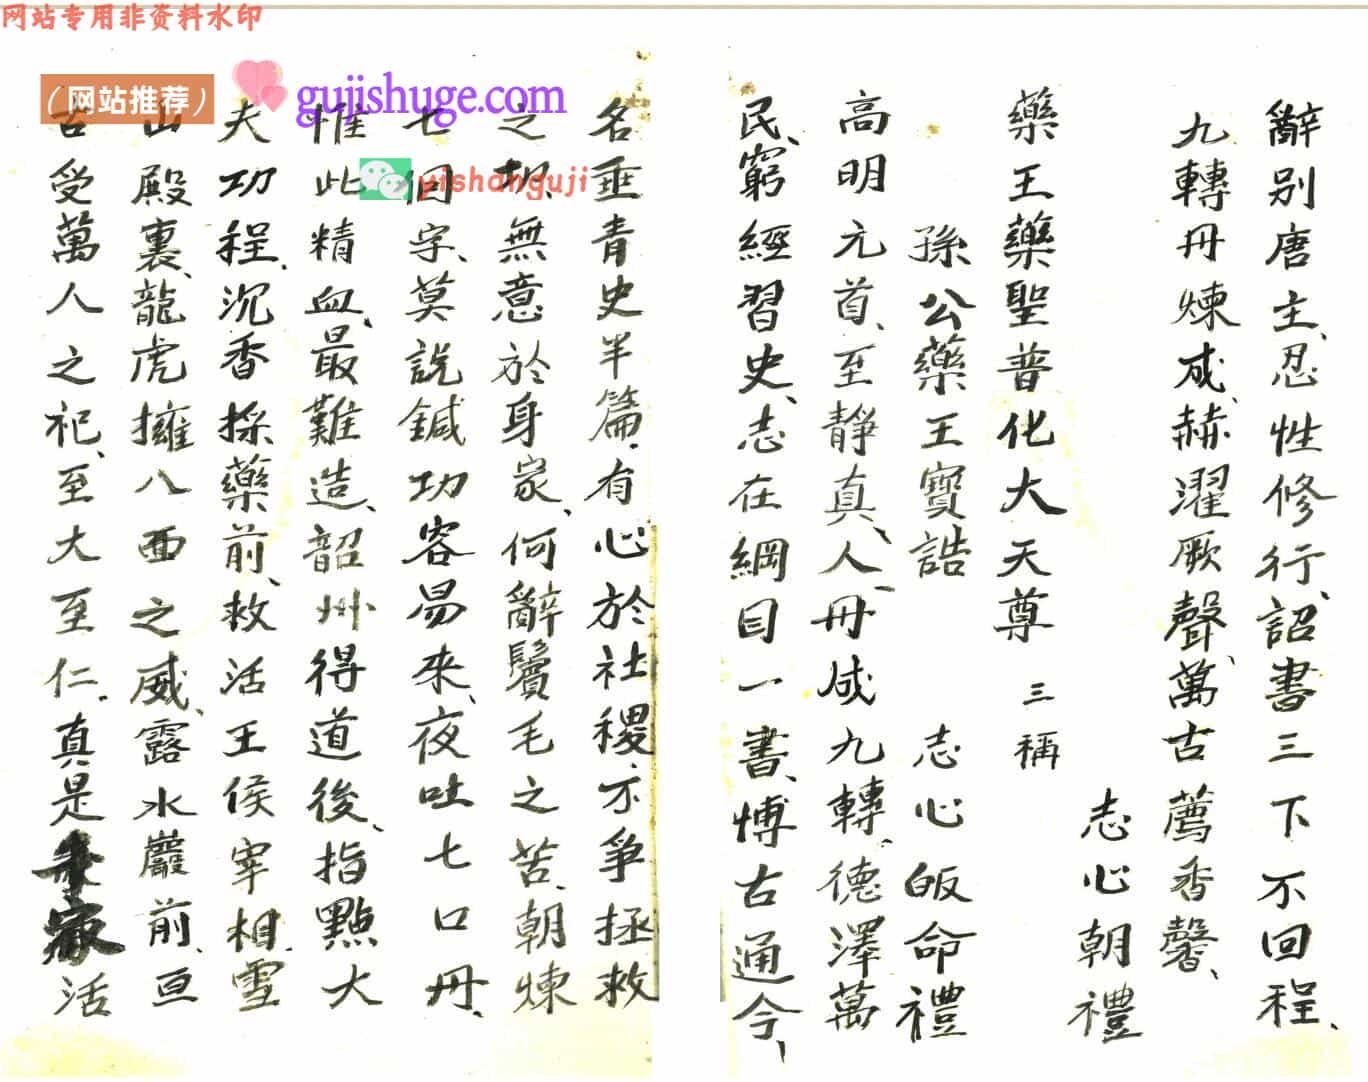 网站专用非资料水印
(网站推荐)
gujishuge.com
yishanguji
辭别唐主、忍性修行、詔書三下不回程、
九轉丹煉成、赫濯厥聲、萬古薦香馨、
志心朝禮
藥王藥聖普化大天尊 三稱
孫公藥王寶誥 志心皈命禮
高明元首、至靜真人、丹成九轉、德澤萬
民、窮經習史、志在綱目一書、博古通今、
名垂青史半篇、有心於社稷、不爭拯救
之切、無意於身家、何辭鬢毛之苦、朝煉
七個字、莫説鍼功容易來、夜吐七口丹、
惟此精血、最難造、韶州得道後、指點大
夫功程、沉香採藥前、救活王侯宰相、雪
山殿裏、龍虎擁八面之威、露水巖前、亘
古受萬人之祀、至大至仁、真是 活